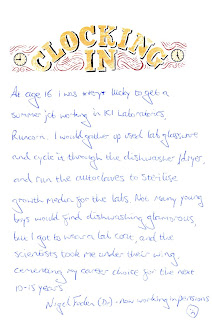 CLOCKING
IN
At age 16 I was very lucky to get a
summer job working in ICI Laboratories,
Runcorn. I would gather up used lab glassware
and cycle it through the dishwasher / dryer,
and run the autoclaves to sterilise
growth media for the labs. Not many young
boys would find dishwashing glamorous,
but I got to wear a lab coat, and the
scientists took me under their wing,
cementing my career choice for the next
10-15 years
Nigel (Dr) - now working in